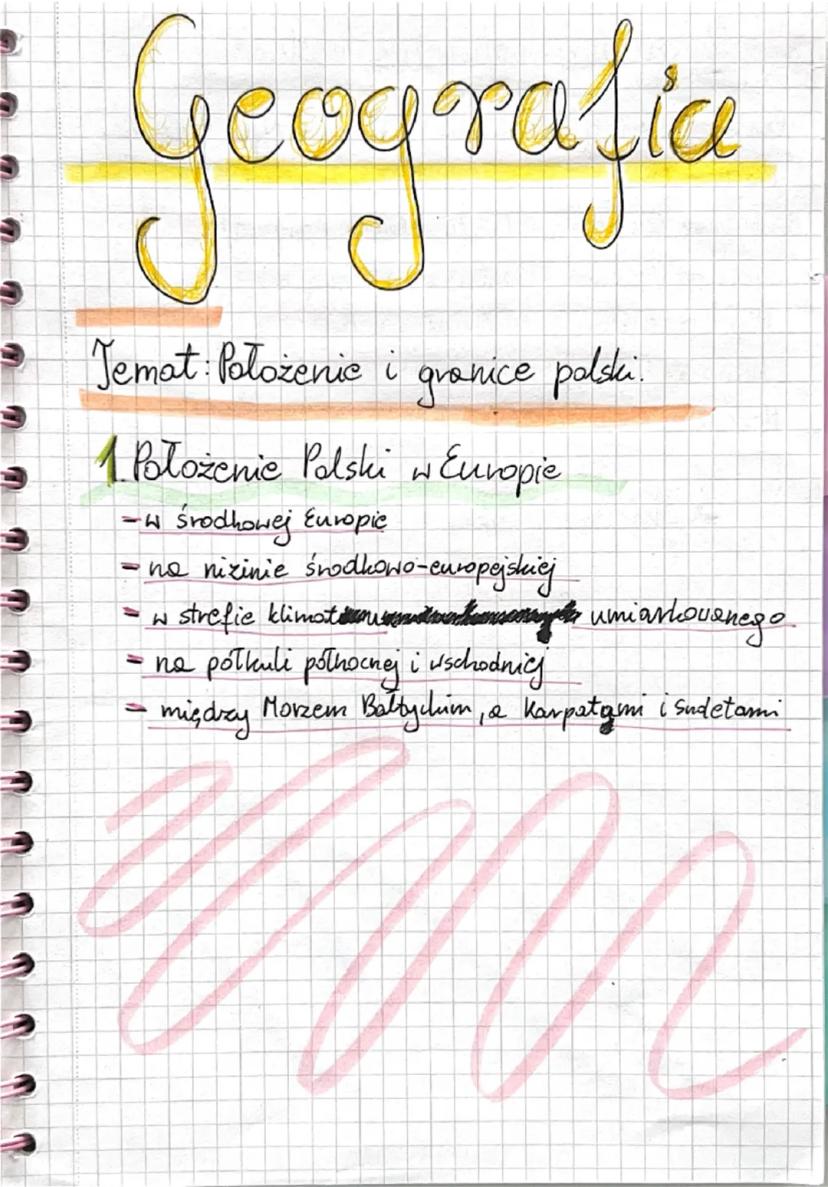 Geografia
Temat: Położenie i granice polski.
1. Położenie Polski w Europie
- w środkowej Europie
- na nizinie środkowo-europejskiej
- w strefie klimat umiarkowanego
- na półkuli północnej i wschodniej
- między Morzem Bałtyckim, a Karpatami i sudetami